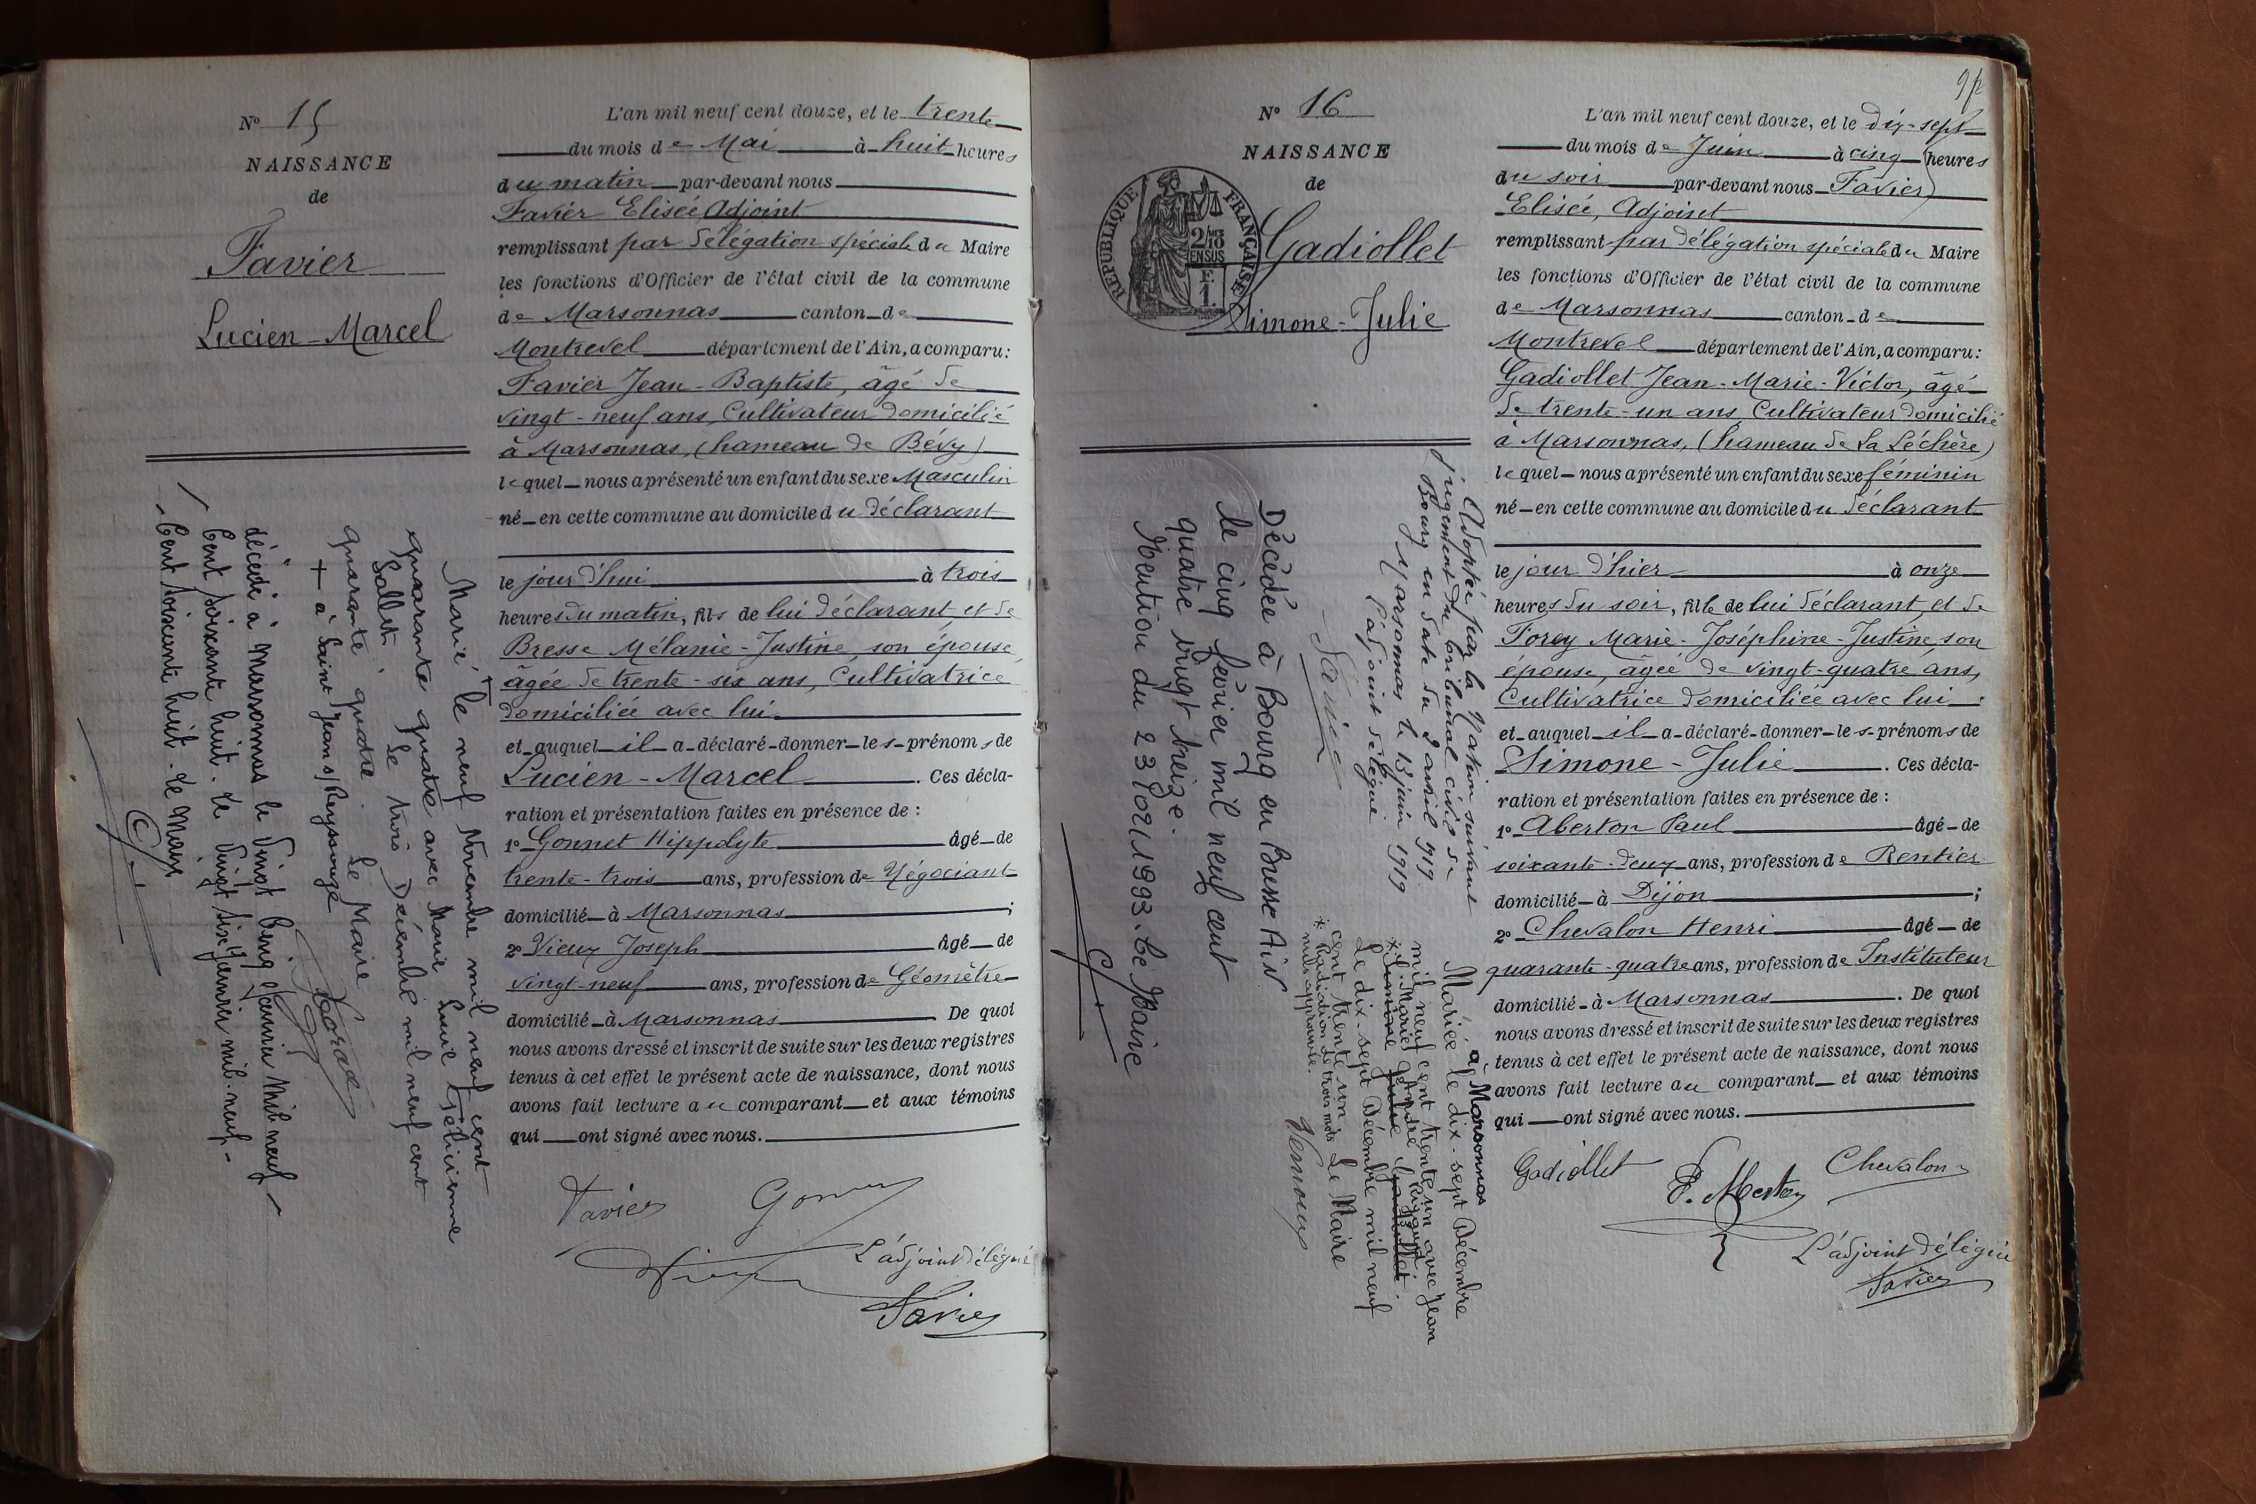 N° 15
NAISSANCE
de
Favier
Lucien-Marcel
L'an mil neuf cent douze, et le trente
du mois de Mai à huit heures
du matin par-devant nous
Favier Elisée, Adjoint
remplissant par délégation spéciale du Maire
les fonctions d'Officier de l'état civil de la commune
de Marsonnas canton de
Montrevel département de l'Ain, a comparu:
Favier Jean-Baptiste, âgé de
vingt-neuf ans, Cultivateur domicilié
à Marsonnas, (hameau de Bévy)
lequel nous a présenté un enfant du sexe Masculin
né en cette commune au domicile du déclarant
le jour d'hui à trois
heures du matin, fils de lui déclarant, et de
Bresse Mélanie-Justine, son épouse,
âgée de trente-six ans, Cultivatrice
domiciliée avec lui.
et auquel il a déclaré donner les prénoms de
Lucien-Marcel. Ces décla-
ration et présentation faites en présence de :
1° Gonnet Hippolyte Âgé de
trente-trois ans, profession de Négociant
domicilié à Marsonnas ;
2° Vieux Joseph Âgé de
vingt-neuf ans, profession de Géomètre
domicilié à Marsonnas. De quoi
nous avons dressé et inscrit de suite sur les deux registres
tenus à cet effet le présent acte de naissance, dont nous
avons fait lecture au comparant et aux témoins
qui ont signé avec nous.
Favier
L'adjoint délégué
Favier
Marié + le neuf Novembre mil neuf cent
quarante quatre avec Marie Louise Félicienne
Sallet. Le trois Décembre mil neuf cent
quarante quatre. Le Maire
+ à Saint Jean s/Reyssouze
décédé à Marsonnas le vingt cinq Janvier mil neuf
Cent soixante huit. Le vingt six Janvier mil-neuf-
Cent soixante huit. Le Maire
N° 16
NAISSANCE
de
RÉPUBLIQUE FRANÇAISE
2/10 EN SUS
F.
1.
Gadiollet
Simone-Julie
L'an mil neuf cent douze, et le dix-sept
du mois de Juin à cinq heures
du soir par-devant nous Favier
Elisée, Adjoint
remplissant par délégation spéciale du Maire
les fonctions d'Officier de l'état civil de la commune
de Marsonnas canton de
Montrevel département de l'Ain, a comparu:
Gadiollet Jean-Marie-Victor, âgé
de trente-un ans, Cultivateur domicilié
à Marsonnas, (hameau de La Léchère)
lequel nous a présenté un enfant du sexe féminin
né en cette commune au domicile du déclarant
le jour d'hier à onze
heures du soir, fille de lui déclarant, et de
Forey Marie-Joséphine-Justine, son
épouse, âgée de vingt-quatre ans,
Cultivatrice domiciliée avec lui.
et auquel il a déclaré donner les prénoms de
Simone-Julie. Ces décla-
ration et présentation faites en présence de :
1° Aberton Paul Âgé de
soixante-deux ans, profession de Rentier
domicilié à Dijon ;
2° Chevalon Henri Âgé de
quarante-quatre ans, profession de Instituteur
domicilié à Marsonnas. De quoi
nous avons dressé et inscrit de suite sur les deux registres
tenus à cet effet le présent acte de naissance, dont nous
avons fait lecture au comparant et aux témoins
qui ont signé avec nous.
Gadiollet
Chevalon
L'adjoint délégué
Favier
Adoptée par la Nation suivant
jugement du tribunal civil de
Bourg en date du 2 avril 1919
Marsonnas le 13 juin 1919
L'adjoint délégué
Favier
Mariée à Marsonnas le dix-sept Décembre
mil neuf cent trente un avec Jean
Marie André
Simone Julie Gadiollet.
Le dix-sept Décembre mil neuf
cent trente un. Le Maire
* Radiation de trois mots
nuls approuvée.
Décédée à Bourg en Bresse Ain
le cinq février mil neuf cent
quatre vingt treize.
Mention du 23/02/1993. Le Maire